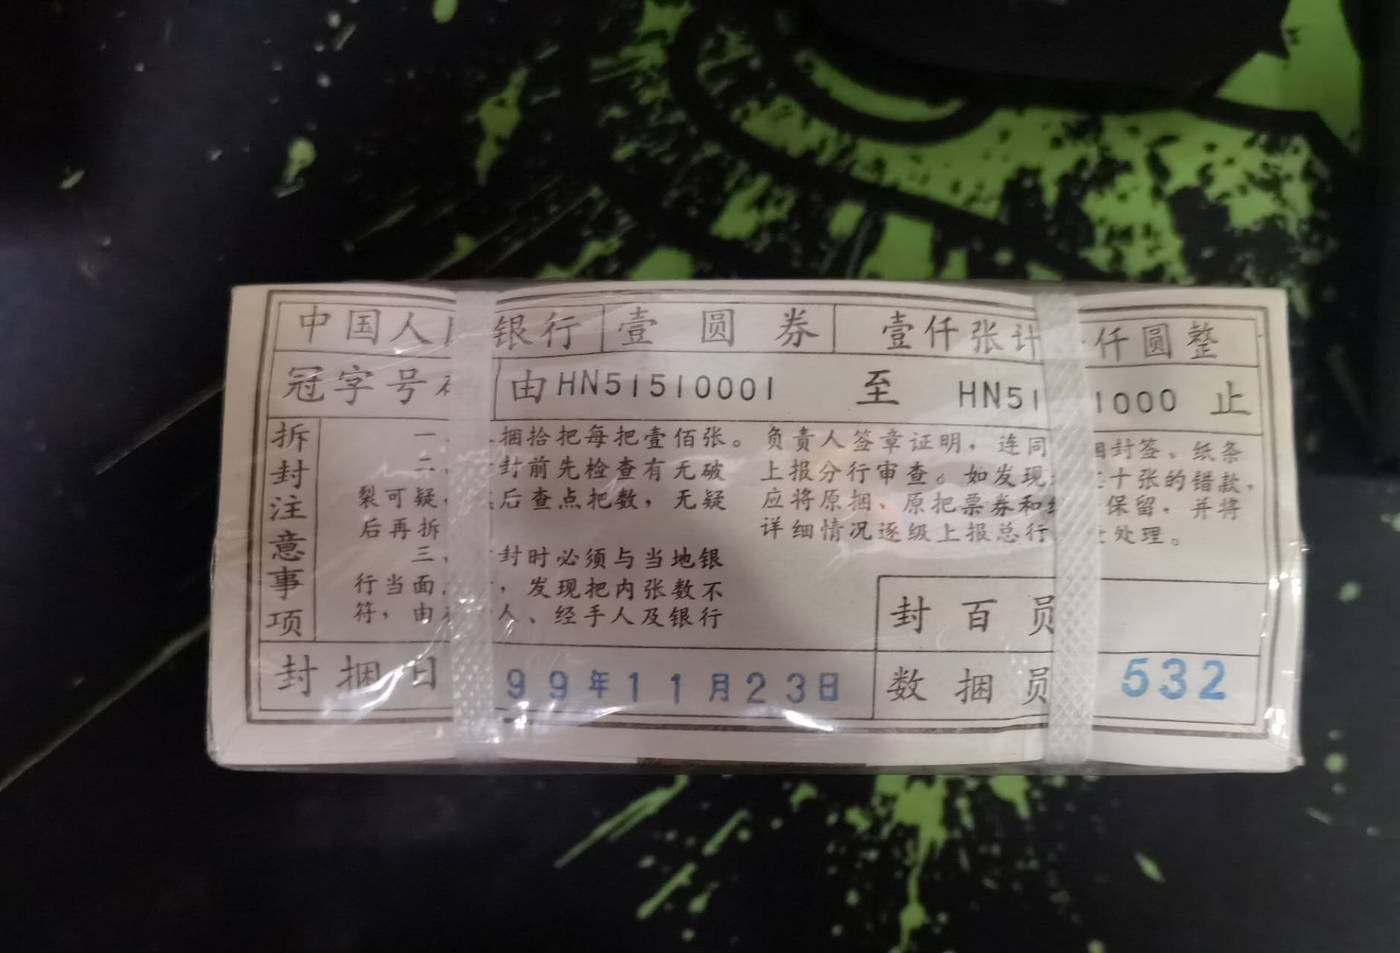 中国人 银行 壹圆券 壹仟张计 仟圆整
冠字号 由HN51510001 至 HN51 1000 止
拆封注意事项
一、 捆拾把每把壹佰张。
二、 封前先检查有无破
裂可疑, 后查点把数,无疑
后再拆
三、 封时必须与当地银
行当面 ,发现把内张数不
符,由 人、经手人及银行
负责人签章证明,连同 封签、纸条
上报分行审查。如发现 十张的错款,
应将原捆、原把票券和 保留,并将
详细情况逐级上报总行 处理。
封百员
封捆日 99年11月23日
数捆员 532